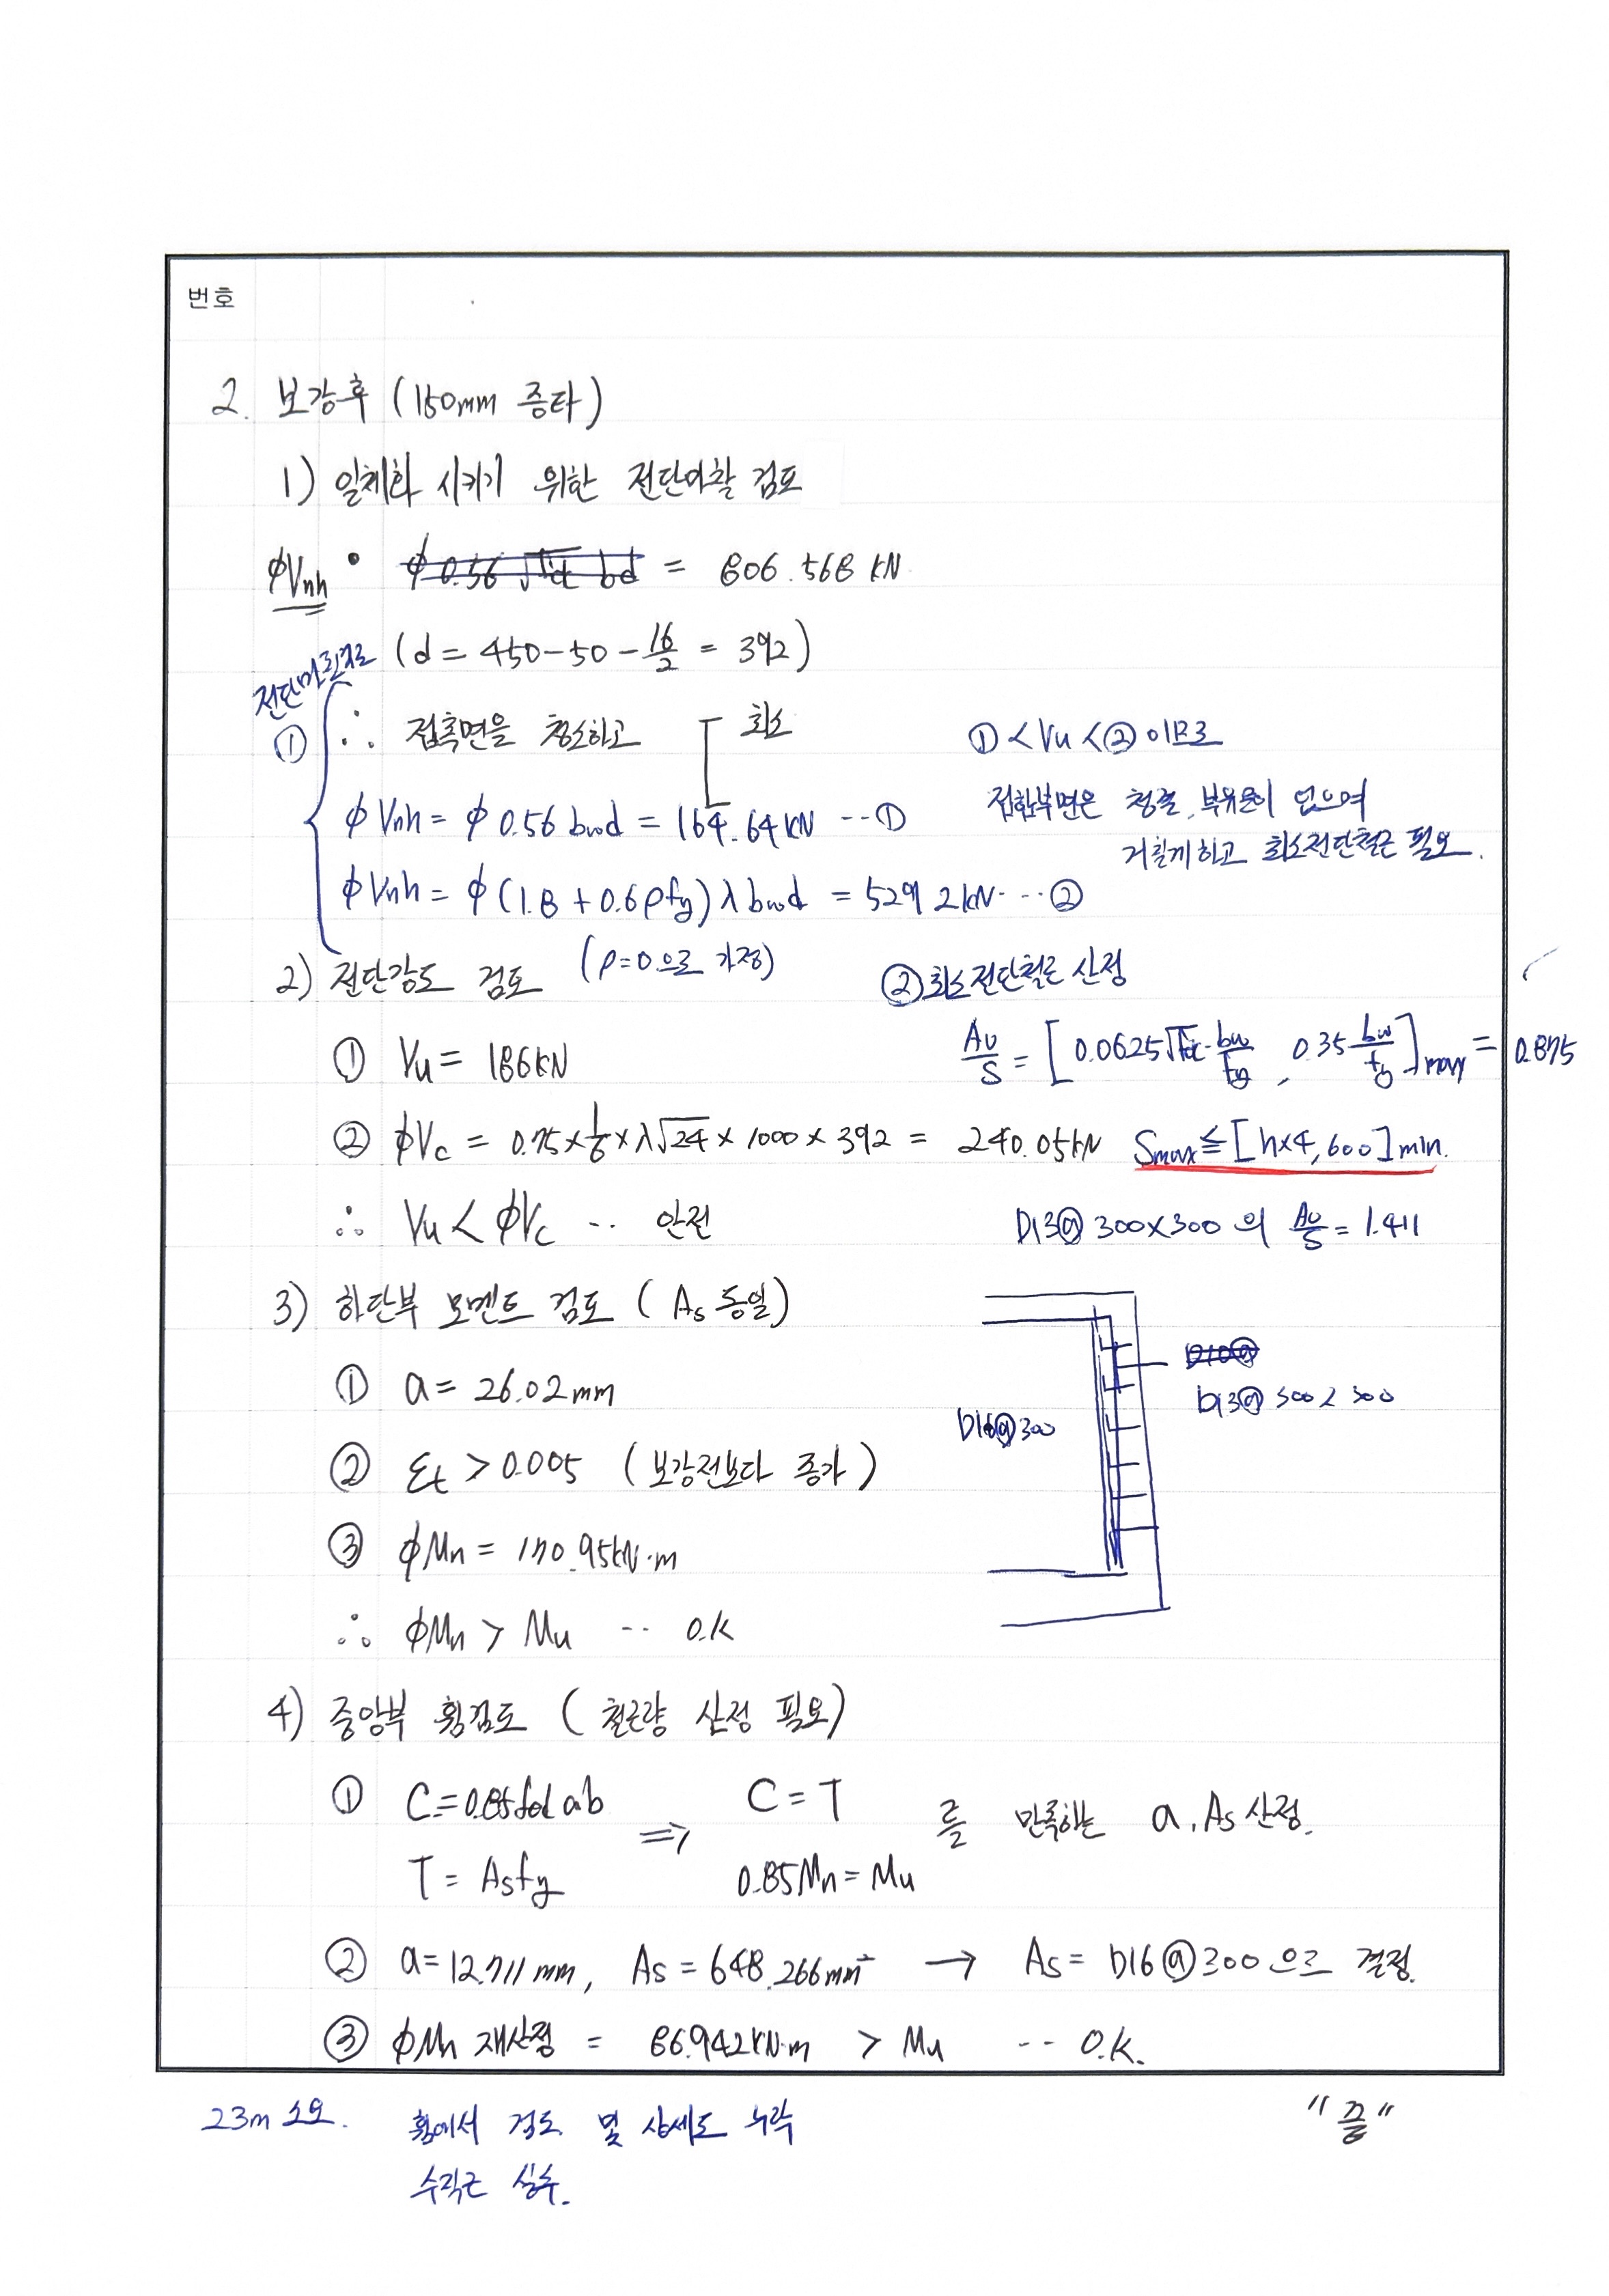 번호
2. 보강후 (150mm 증타)
1) 일체화 시키기 위한 전단마찰 검토
ϕVnh • ϕ 0.56 √fck bd = 806.568 kN
(d = 450 - 50 - 16/2 = 392)
전단마찰검토
① ∴ 접촉면을 청소하고 최소
ϕVnh = ϕ 0.56 bwd = 164.64 kN --- ①
ϕVnh = ϕ (1.8 + 0.6ρfy) λ bwd = 529.2 kN --- ②
(ρ=0으로 가정)
① < Vu < ② 이므로
접합부면은 청결, 부유물이 없으며
거칠게하고 최소전단철근 필요.
2) 전단강도 검토
① Vu = 186kN
② ϕVc = 0.75 × 1/6 × λ√24 × 1000 × 392 = 240.05kN
∴ Vu < ϕVc -- 안전
② 최소전단철근 산정
Av/S = [0.0625√fck bw/fy , 0.35 bw/fy]max = 0.875
Smax ≤ [h×4, 600]min.
D13@300×300 의 Av/S = 1.411
3) 하단부 모멘트 검토 (As 동일)
① a = 26.02mm
② εt > 0.005 (보강전보다 증가)
③ ϕMn = 170.95kN·m
∴ ϕMn > Mu -- O.K
D10@
D13@300×300
D16@300
4) 중앙부 휨검토 (철근량 산정 필요)
① C = 0.85fck ab ⇒ C = T 를 만족하는 a, As 산정.
T = Asfy 0.85Mn = Mu
② a = 12.711mm, As = 648.266mm² → As = D16@300으로 결정.
③ ϕMn 재산정 = 86.942kN·m > Mu -- O.K.
23m 소요. 휨에서 검토 및 상세도 누락
수직근 실수.
"끝"